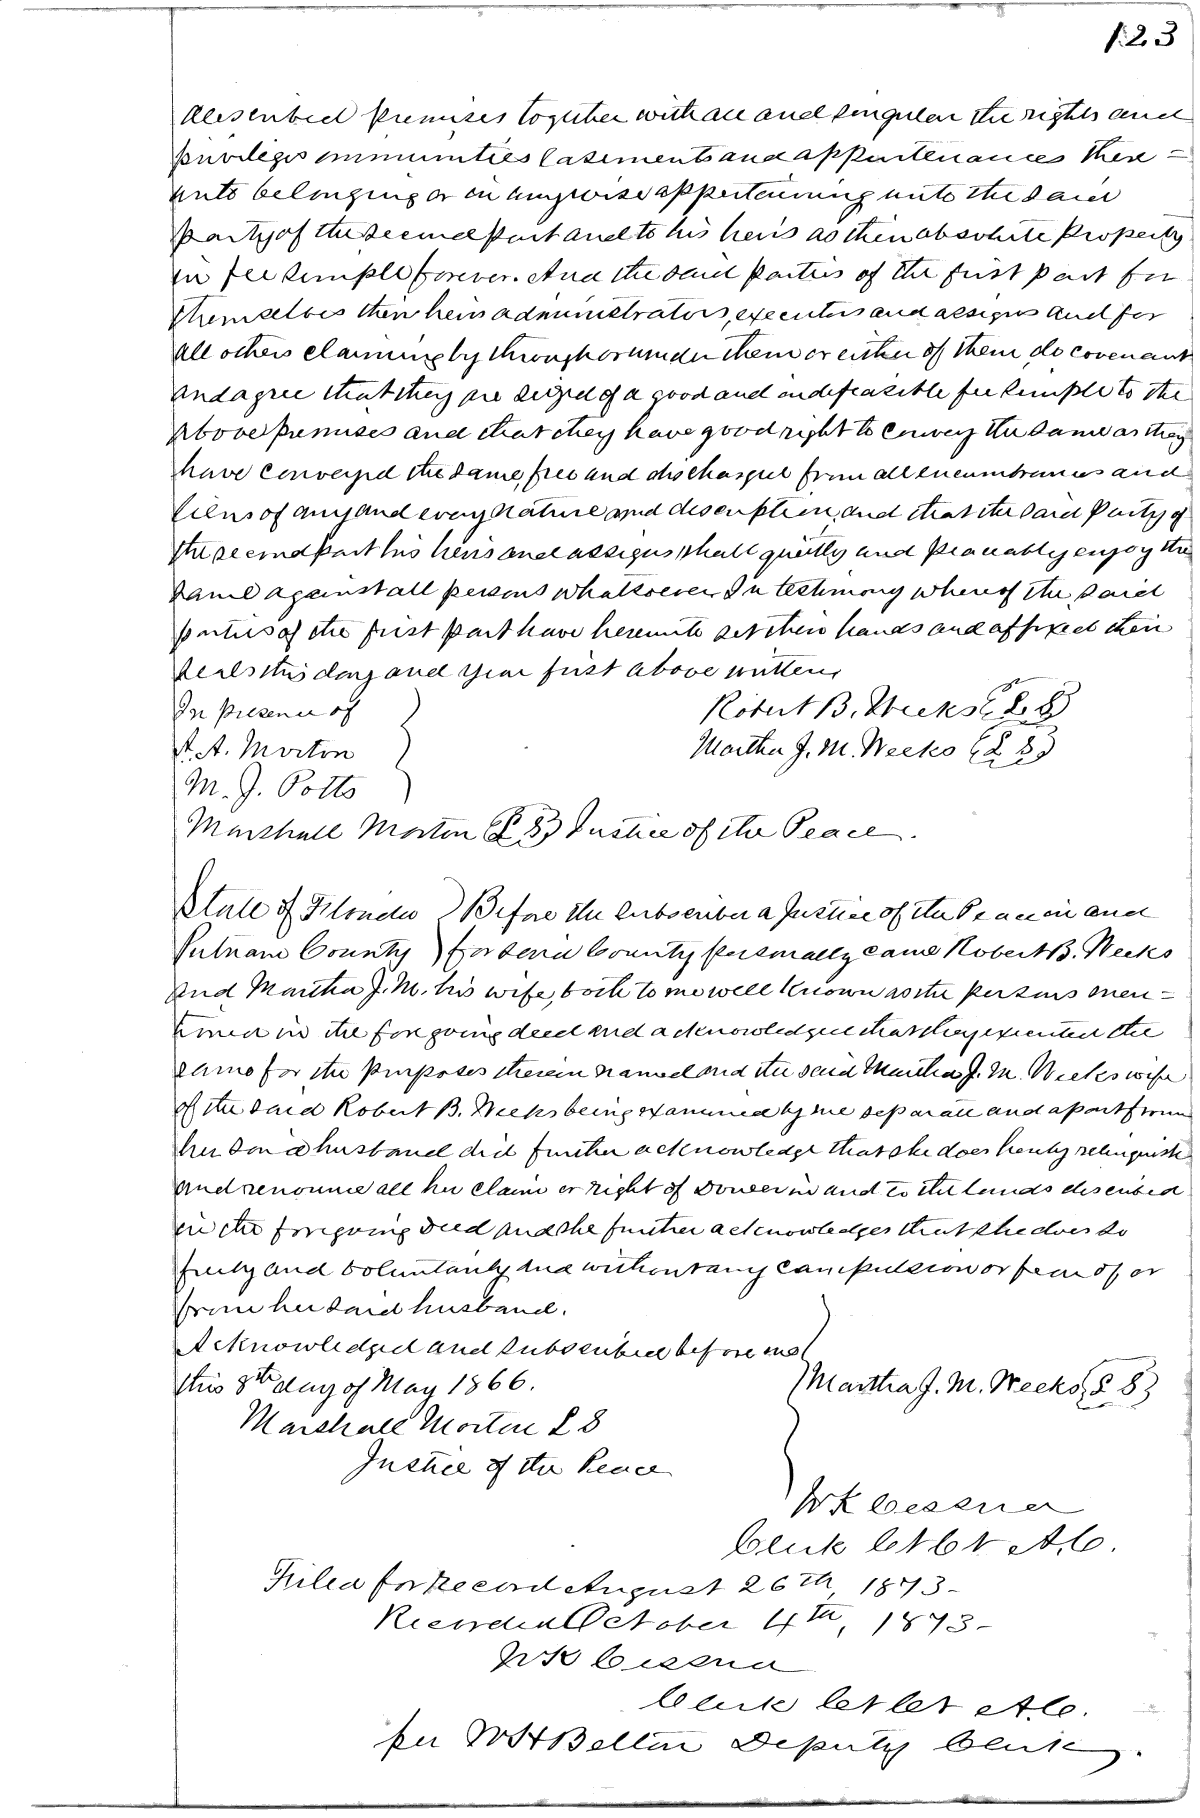 123
described premises together with all and singular the rights and
privileges immunities easements and appurtenances there=
unto belonging or in anywise appertaining unto the said
party of the second part and to his heirs as their absolute property
in fee simple forever. And the said parties of the first part for
themselves their heirs administrators, executors and assigns and for
all others claiming by through or under them or either of them, do covenant
and agree that they are seized of a good and indefeasible fee simple to the
above premises and that they have good right to convey the same as they
have conveyed the same, free and discharged from all encumbrances and
liens of any and every nature and description, and that the said party of
the second part his heirs and assigns shall quietly and peaceably enjoy the
same against all persons whatsoever. In testimony whereof the said
parties of the first part have hereunto set their hands and affixed their
seals this day and year first above written,
In presence of
A. A. Morton
M. J. Potts
Robert B. Weeks {L S}
Martha J. M. Weeks {L S}
Marshall Morton {L S} Justice of the Peace.
State of Florida } Before the subscriber a Justice of the Peace in and
Putnam County } for said County personally came Robert B. Weeks
and Martha J. M. his wife, both to me well known as the persons men=
tioned in the foregoing deed and acknowledged that they executed the
same for the purposes therein named and the said Martha J. M. Weeks wife
of the said Robert B. Weeks being examined by me separate and apart from
her said husband did further acknowledge that she does hereby relinquish
and renounce all her claim or right of Dower in and to the lands described
in the foregoing Deed and she further acknowledges that she does so
freely and voluntarily and without any compulsion or fear of or
from her said husband.
Acknowledged and subscribed before me
this 8th day of May 1866.
Martha J. M. Weeks {L S}
Marshall Morton L S
Justice of the Peace
W K Cessna
Clerk Ct Ct A. C.
Filed for Record August 26th, 1873-
Recorded October 4th, 1873-
W K Cessna
Clerk Ct Ct A. C.
per W H Belton Deputy Clerk.